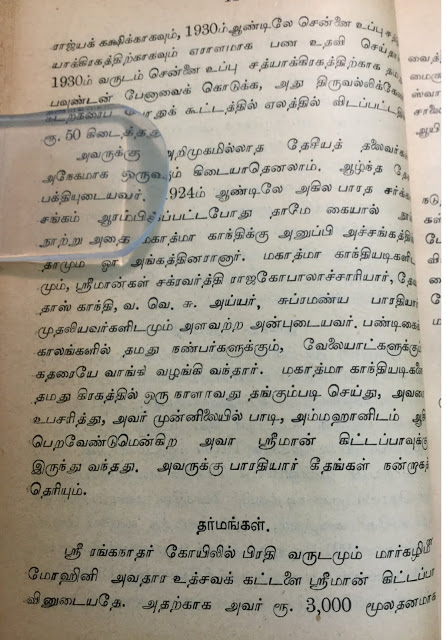 ராஜ்யக் கக்ஷிக்காகவும், 1930ம் ஆண்டிலே சென்னை உப்பு சத்
யாக்கிரகத்திற்காகவும் ஏராளமாக பண உதவி செய்தார்
1930ம் வருடம் சென்னை உப்பு சத்யாக்கிரகத்திற்காக தம
பவுண்டன் பேனாவைக் கொடுக்க, அது திருவல்லிக்கே
கூட்டத்தில் ஏலத்தில் விடப்பட்டதி
ரூ. 50 கிடைத்தது
அவருக்கு அறிமுகமில்லாத தேசியத் தலைவர்க
அநேகமாக ஒருவரும் கிடையாதெனலாம். ஆழ்ந்த தே
பக்தியுடையவர். 1924ம் ஆண்டிலே அகில பாரத சர்க்
சங்கம் ஆரம்பிக்கப்பட்டபோது தாமே கையால் நூ
நூற்று அதை மகாத்மா காந்திக்கு அனுப்பி அச்சங்கத்தி
தாமும் ஓர் அங்கத்தினரானார். மகாத்மா காந்தியடிகளி
மும், ஸ்ரீமான்கள் சக்ரவர்த்தி ராஜகோபாலாச்சாரியார், தேவ
தாஸ் காந்தி, வ. வெ. சு. அய்யர், சுப்ரமண்ய பாரதியா
முதலியவர்களிடமும் அளவற்ற அன்புடையவர். பண்டிகை
காலங்களில் தமது நண்பர்களுக்கும், வேலையாட்களுக்கு
கதரையே வாங்கி வழங்கி வந்தார். மகாத்மா காந்தியடிகளை
தமது கிரகத்தில் ஒரு நாளாவது தங்கும்படி செய்து, அவரை
உபசரித்து, அவர் முன்னிலையில் பாடி, அம்மஹானிடம் ஆசி
பெறவேண்டுமென்கிற அவா ஸ்ரீமான் கிட்டப்பாவுக்கு
இருந்து வந்தது. அவருக்கு பாரதியார் கீதங்கள் நன்றாகத்
தெரியும்.
தர்மங்கள்.
ஸ்ரீ ரங்கநாதர் கோயிலில் பிரதி வருடமும் மார்கழிமீ
மோஹினி அவதார உத்சவக் கட்டளை ஸ்ரீமான் கிட்டப்பா
வினுடையதே. அதற்காக அவர் ரூ. 3,000 மூலதனமாக